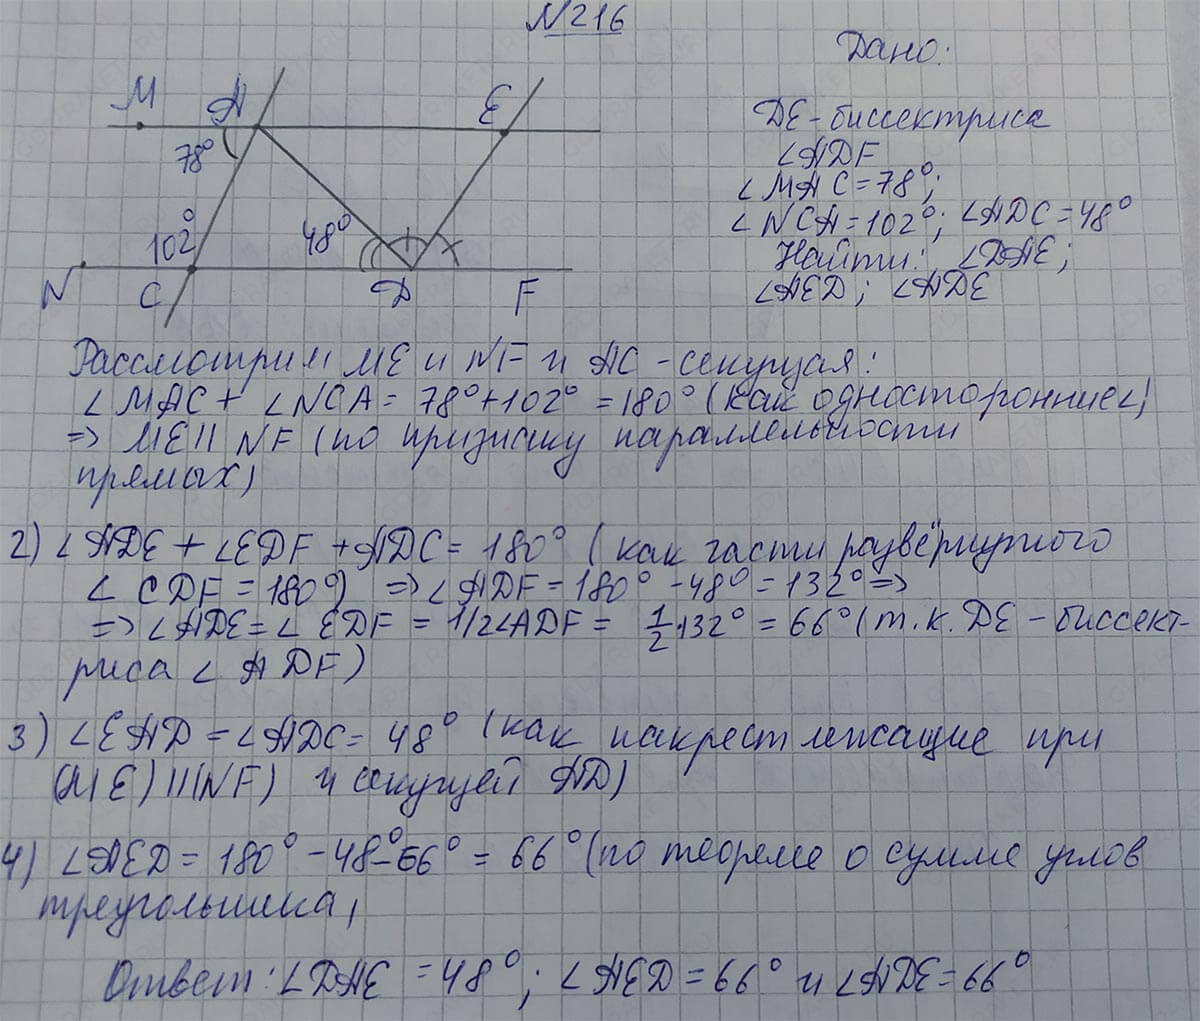 N216
Дано:
M A E
78°
102°
48°
N C D F
DE-биссектриса
∠ADF
∠MAC=78°;
∠NCA=102°; ∠ADC=48°
Найти: ∠DAE;
∠AED; ∠ADE
Рассмотрим ME и NF и AC-секущая:
∠MAC+ ∠NCA= 78°+102° =180° (как односторонние∠)
=> ME || NF (по признаку параллельности
прямых)
2) ∠ADE + ∠EDF +ADC= 180° (как части развёрнутого
∠ CDF =180°) =>∠ADF=180° -48°=132°=>
=>∠ADE=∠ EDF = 1/2∠ADF = 1/2·132° = 66° (т.к. DE-биссект-
риса ∠ ADF)
3) ∠EAD=∠ADC= 48° (как накрест лежащие при
(ME) || (NF) и секущей AD)
4) ∠AED= 180° -48°-66° = 66° (по теореме о сумме углов
треугольника)
Ответ: ∠DAE =48°; ∠AED=66° и ∠ADE=66°